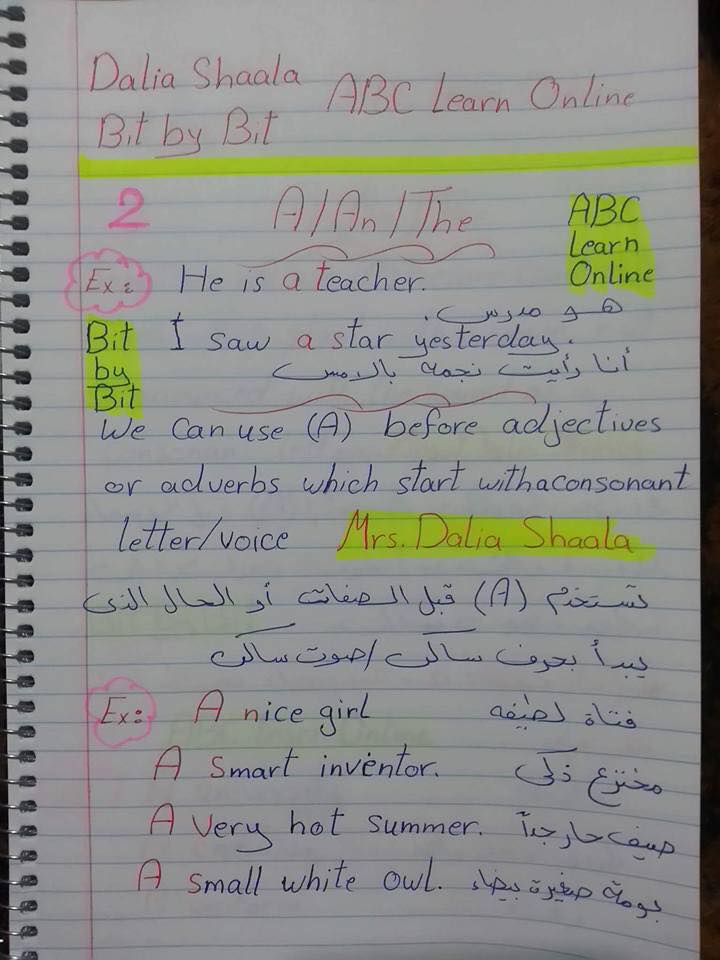 Dalia Shaala ABC Learn Online
Bit by Bit
2 A/An/The ABC
Learn
Online
Ex: He is a teacher.
هو مدرس.
Bit
by
Bit
I saw a star yesterday.
أنا رأيت نجمة بالامس
We Can use (A) before adjectives
or adverbs which start with a consonant
letter/voice Mrs. Dalia Shaala
تستخدم (A) قبل الصفات أو الحال الذى
يبدأ بحرف ساكن/صوت ساكن
Ex: A nice girl فتاة لطيفه
A smart inventor. مخترع ذكى
A very hot summer. صيف حار جداً
A small white owl. بومة صغيرة بيضاء